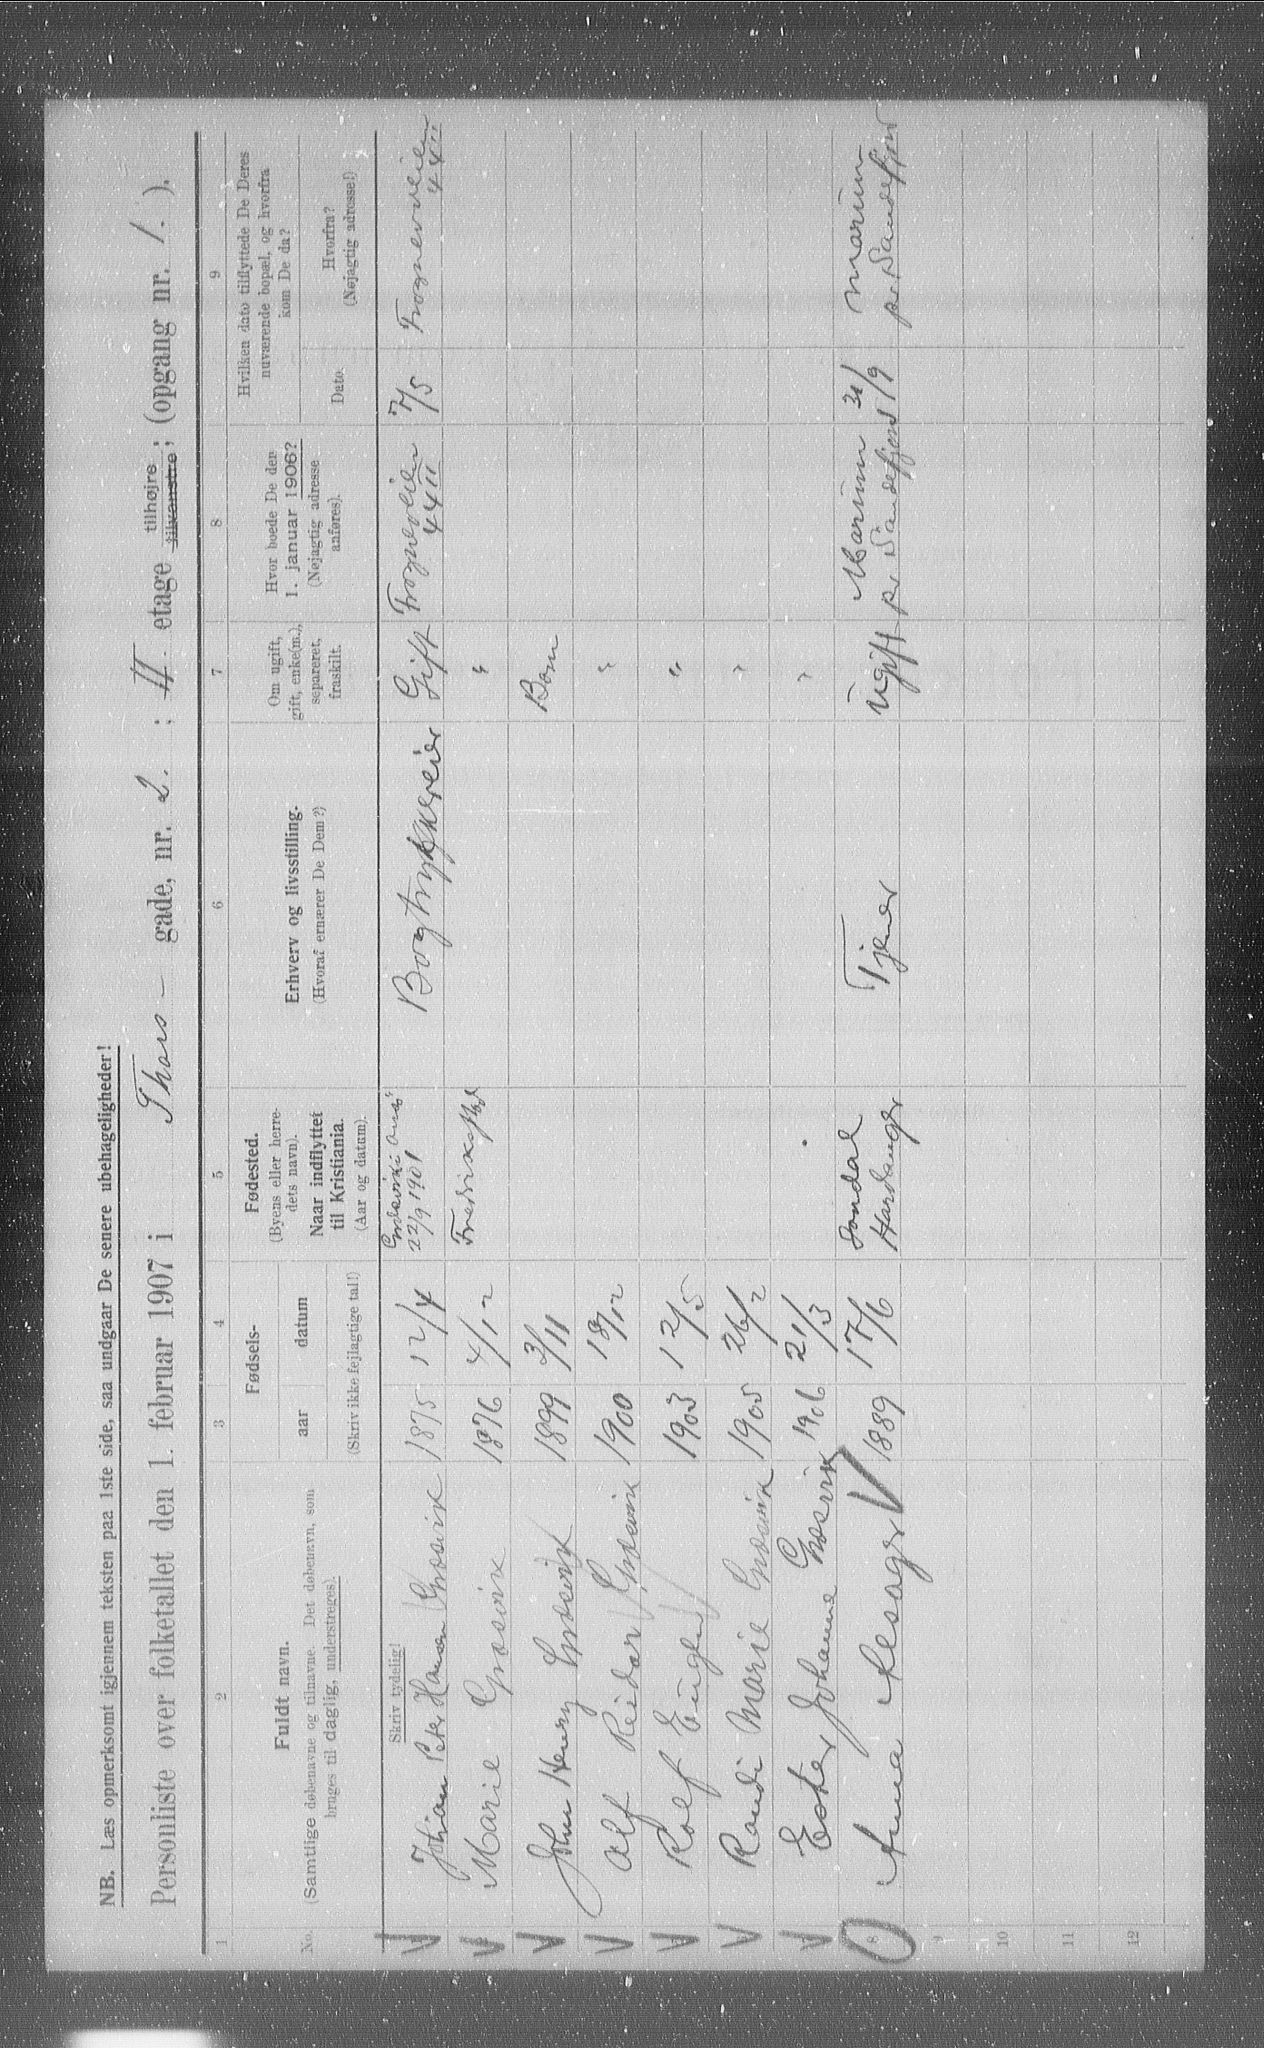 NB. Læs opmerksomt igjennem teksten paa 1ste side, saa undgaar De senere ubehageligheder!
Personliste over folketallet den 1. februar 1907 i Thors – gade, nr. 2. ; II etage tilhøjre tilvenstre; (opgang nr. 1. ).
1 2 3 4 5 6 7 8 9
No.
Fuldt navn.
(Samtlige døbenavne og tilnavne. Det døbenavn, som
bruges til daglig, understreges).
Fødsels-
aar datum
(Skriv ikke fejlagtige tal!)
Fødested.
(Byens eller herre-
dets navn).
Naar indflyttet
til Kristiania.
(Aar og datum).
Erhverv og livsstilling.
(Hvoraf ernærer De Dem?)
Om ugift,
gift, enke(m.),
separeret,
fraskilt.
Hvor boede De den
1. januar 1906?
(Nøjagtig adresse
anføres).
Hvilken dato tilflyttede De Deres
nuværende bopæl, og hvorfra
kom De da?
Dato.
Hvorfra?
(Nøjagtig adresse!)
Skriv tydelig!
Johan Peter Hansen Græsvik 1875 12/4 22/9 1901 Bogtrykkereier Gift Frognerveien 44 II 7/5 Frognerveien 44 II
Marie Græsvik 1876 4/12 Fredriksstad "
John Henry Græsvik 1899 3/11 Barn
Alf Reidar Græsvik 1900 18/12 "
Rolf Eugen 1903 12/5 "
Randi Marie Græsvik 1905 26/2 "
Ester Johanna Græsvik 1906 21/3 "
8 Anna Aesager 1889 17/6 Jondal Hardanger Tjener Ugift Marum pr. Sandefjord 21/9 Marum pr. Sandefjord
9
10
11
12